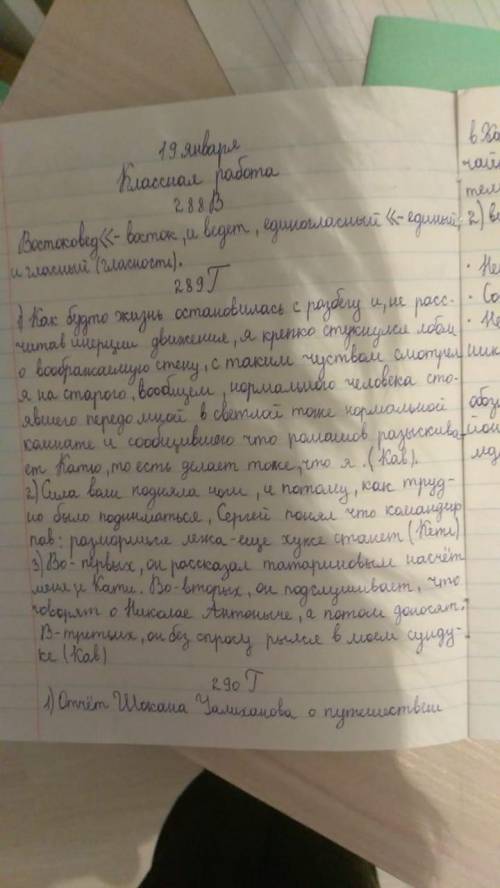 19 января
Классная работа
288В
Востоковед << - восток, и ведет, единогласный << - единый,
и гласный (гласность).
289Г
1) Как будто жизнь остановилась с разбегу и, не расс-
читав инерции движения, я крепко стукнулся лбом
о воображаемую стену, с таким чуством смотрел
я на старого, вообщем, нормального человека сто-
явшего передо мной в светлой тоже нормальной
комнате и сообщившего что ромашов разыскива-
ет Катю, то есть делает тоже, что я. (Кав).
2) Сила воли подняла ноги, и потому, как труд-
но было подниматься, Сергей понял что командир
прав: размормыле лежа - еще хуже станет (Кети)
3) Во-первых, он рассказал татариновым насчёт
меня и Кати. Во-вторых, он подслушивает, что
говорят о Николае Антоныче, а потом доносят.
В-третьих, он без спросу рылся в моем сунду-
ке (Кав)
290Г
1) Отчёт Шокана Уалиханова о путешествии
в Ха
чай
тем
2) в
· Не
· Со
· Не
ник
обоз
йой